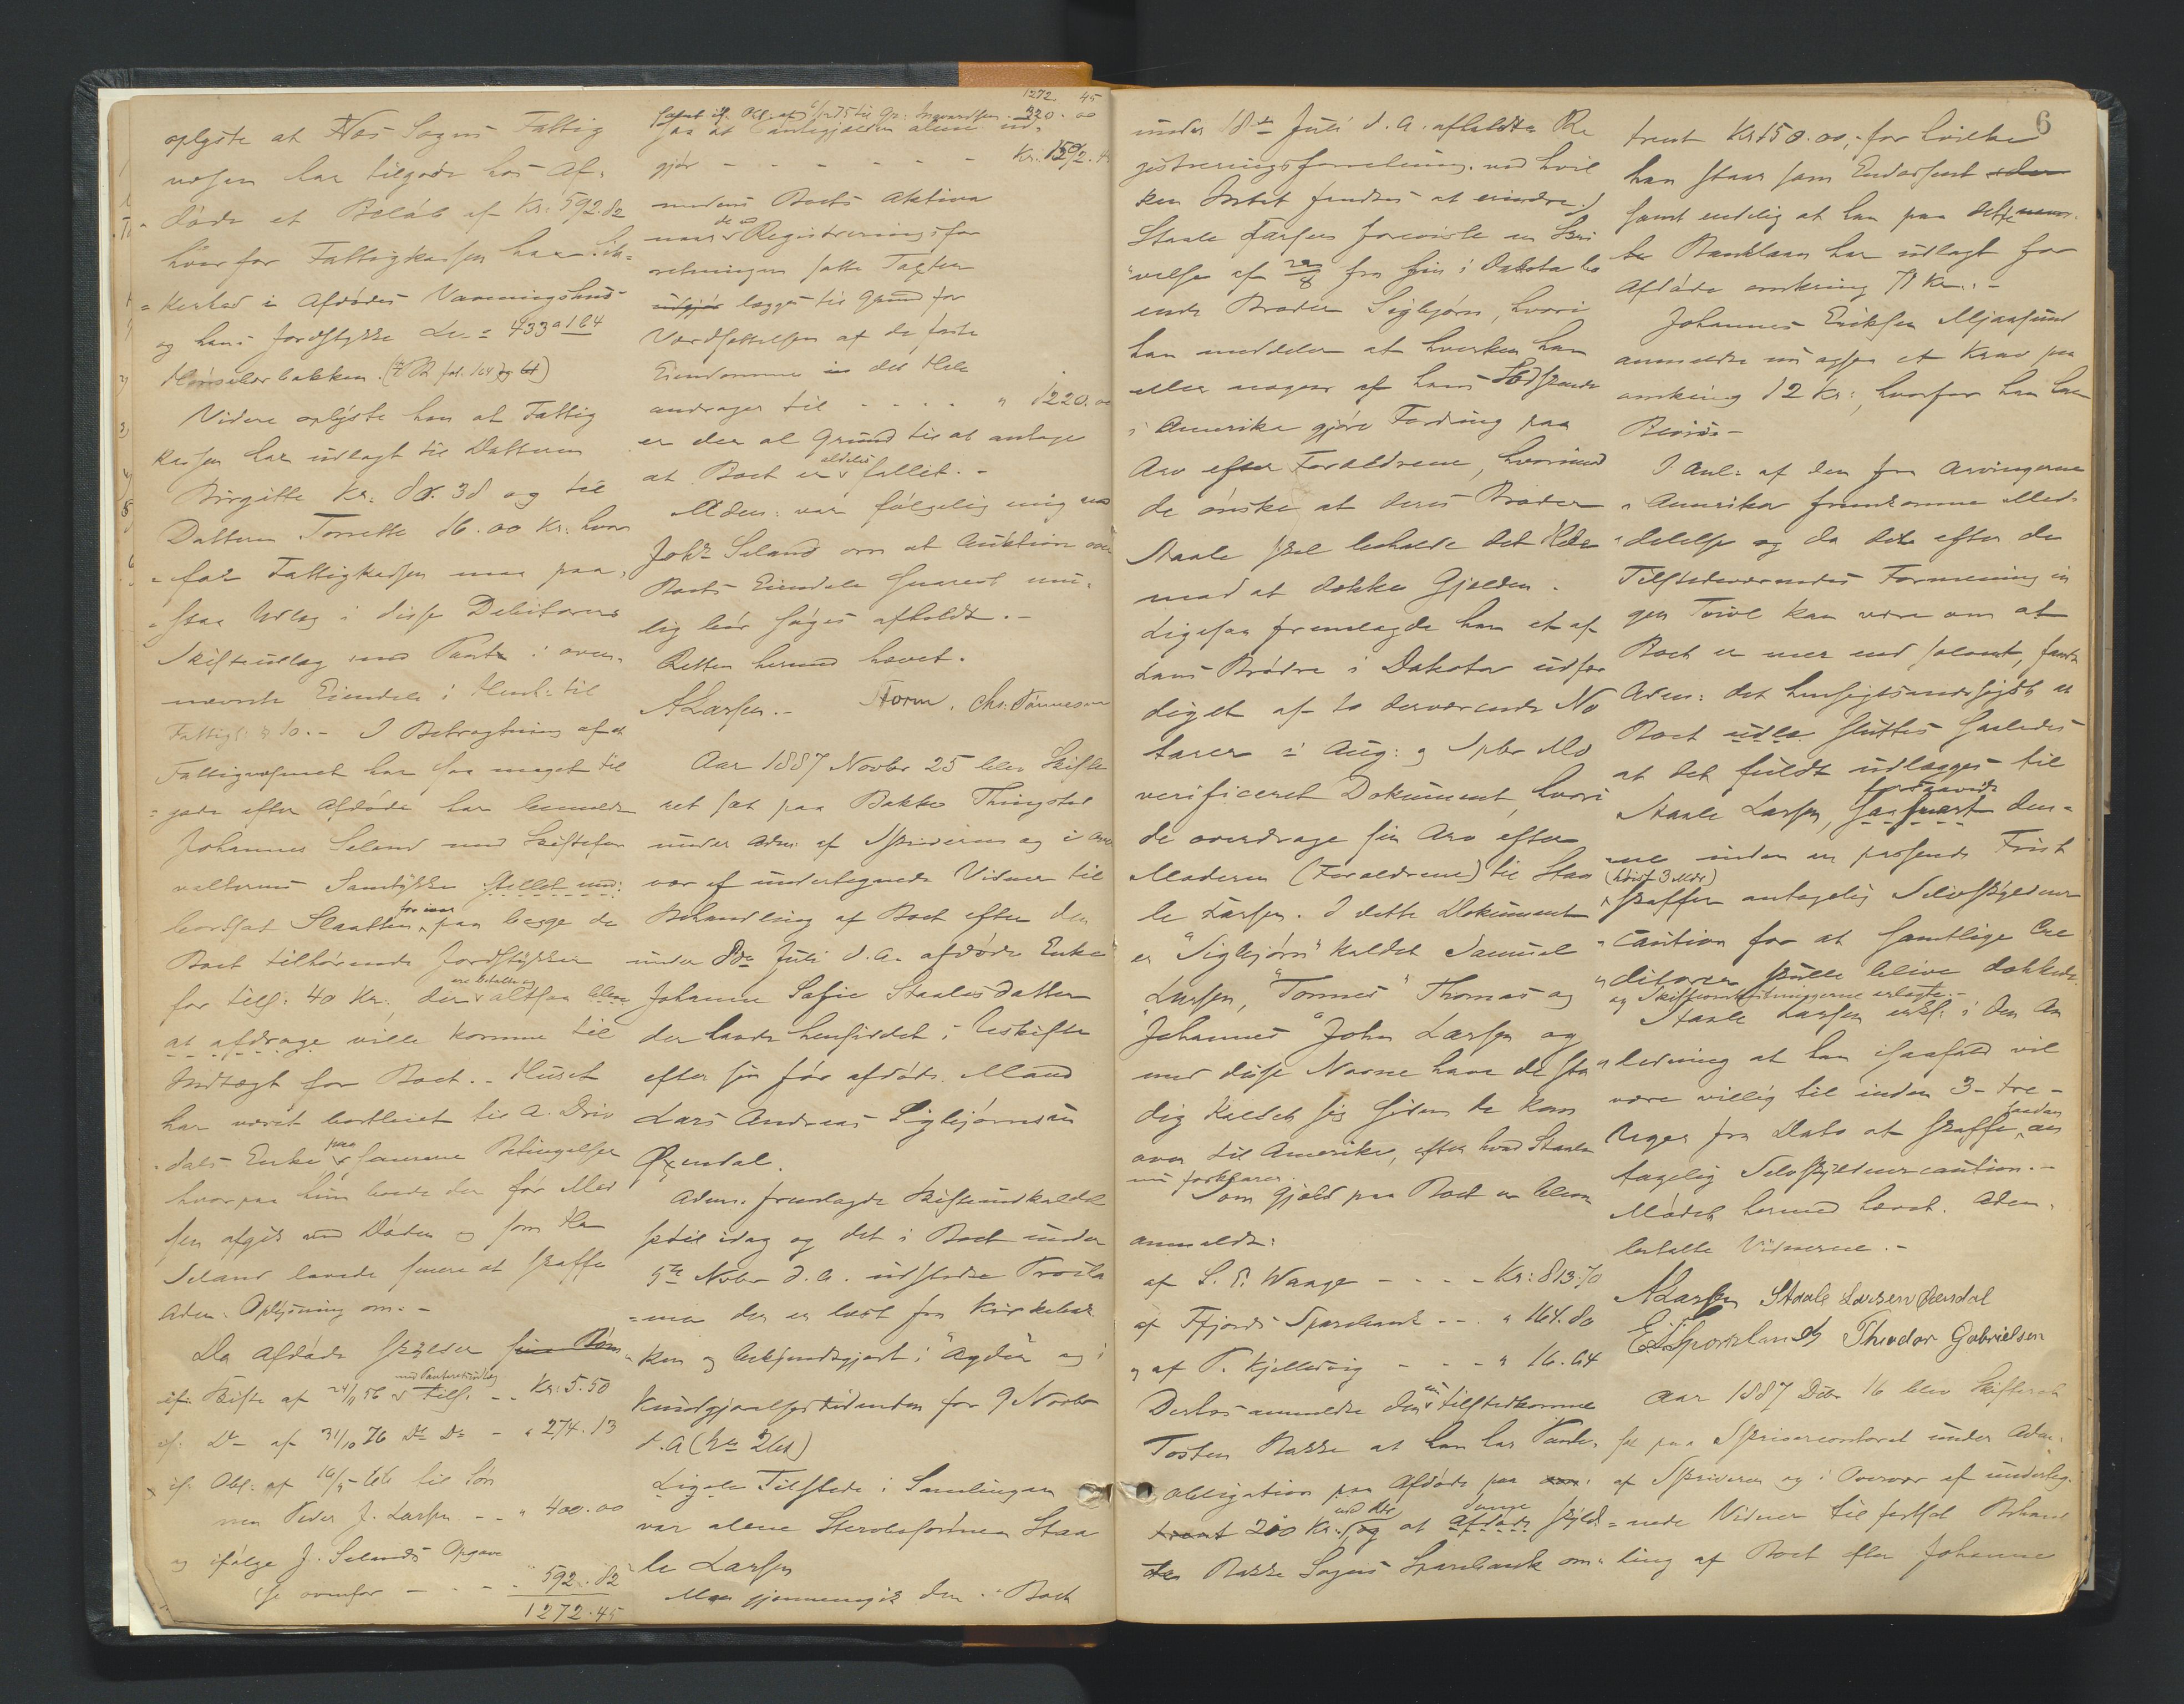 oplyste at Næs Sogns Fattig
væsen har tilgode hos Af-
døde et Beløb af Kr: 592.82
hvorfor Fattigkassen har Sik-
kerhed i Afdødes Vaaningshus
og hans Jordstykke L. 433a 164
Videre oplyste han at Fattig
kassen har udlagt til Datteren
Birgitte Kr: 38 og til
Datteren Tonette 16.00 Kr: hvor
for Fattigkassen maa paa-
staa Udlag i disse Debitorers
Skifteudlag med Pant i oven-
nævnte Eiendele i Henh: til
Fattigl: § 10. - I Betragtning af at
Fattigvæsenet har saa meget til
gode efter Afdøde har
Johannes Seland med Skiftefor
valterens Samtykke stillet und:
bortsat Slaatten for iaar paa begge de
Boet tilhørende Jordstykker
for tils. 40 Kr., der ere betalte og altsaa blive
at afdrage ville komme til
Indtægt for Boet. - Huset
har været bortleiet til A. Driv
dals Enke paa samme Betingelser
hvorpaa hun boede der før
sen afgik ved Døden og som
Seland lovede senere at skaffe
Adm. Oplysning om. -
Da Afdøde skylder
if. Skifte af 24/11 56 med Panteretsudlæg tils. - - Kr: 5.50
if. Do - af 31/10 76 Do Do - " 274.13
if. Obl: af 16/5 66 til Søn
nen Peder J. Larsen - - " 400.00
og ifølge J. Selands Opgave
se ovenfor - - - " 592.82
1272.45
1272. 45
samt if. Obl. af 6/12 75 til Gr: Ingvaldsen - 220. 00
saa at Pantegjælden alene ud-
gjør - - - - - - - Kr: 1502.
medens Boets Aktiva
naar de ved Registreringsfor
retningen satte Taxter
udgjør lægges til Grund for
Værdsættelsen af de faste
Eiendomme i det Hele
andrager til - - - - " 1220.00
er der al Grund til at antage
at Boet er aldeles fallit. -
Adm: var følgelig enig med
Johs Seland om at Auktion over
Boets Eiendele snarest mu-
lig bør søges afholdt. -
Retten hermed hævet.
ALarsen. - Storm. Chr: Tønnesen
Aar 1887 Novbr 25 blev Skifte
ret sat paa Bakke Thingsted
under Adm: af Skriveren og i Over
vær af undertegnede Vidner til
Behandling af Boet efter den
under 8de Juli d. A. afdøde Enke
Johanne Sofie Staalesdatter
der havde hensiddet i Uskifte
efter sin før afdøde Mand
Lars Andreas Sigbjørnsen
Øxendal.
Adm. fremlagde Skifteindkaldel
se til idag og det i Boet under
5te Novbr d. A. udstedte Procla
ma der er læst fra Kirkebak
ken og bekjendtgjort i "Agder" og i
Kundgjørelsestidenden for 9 Novbr
d. A (No 261)
Ligeledes Tilstede i Samlingen
var alene Stervbosønnen Staa
le Larsen
Man gjennemgik den i Boet
6
under 18de Juli d. A. afholdte Re
gistreringsforretning, ved hvil
ken Intet fandtes at erindre.
Staale Larsen foreviste en Skri
velse af fra sin i Dakota bo
ende Broder Sigbjørn, hvori
han meddeler at hverken han
eller nogen af hans Sødskende
i Amerika gjøre Fordring paa
Arv efter Forældrene, hvorimod
de ønske at deres Broder
Staale skal beholde det Hele
mod at dække Gjælden.
Ligesaa fremlagde han et af
hans Brødre i Dakota udfær
diget af to derværende No
tarer i Aug: og Spbr Md
verificeret Dokument, hvori
de overdrage sin Arv efter
Moderen (Forældrene) til Staa
le Larsen. I dette Dokument
er "Sigbjørn" kaldet Samuel
Larsen, "Tønnes" Thomas og
"Johannes" John Larsen og
med disse Navne have de sta
dig kaldet sig siden de kom
over til Amerika, efter hvad Staale
nu forklarer.
Som Gjæld paa Boet er bleven
anmeldt:
af S. P. Waage - - - - Kr: 813.70
af Fjords Sparebank - - " 164.80
og af P. Kjellesvig - - - " 16.64
Derhos anmeldte den nu tilstedkomne
Tosten Bakke at han har Pante-
obligation paa Afdøde paa
200 Kr. og at Afdøde skyld-
te Bakke Sogns Sparebank om-
trent Kr 150.00, for hvilke
han staar som Endossent
samt endelig at han paa dette
Banklaan har udlagt for
Afdøde omkring 71 Kr. -
Johannes Eriksen Mjaasund
anmeldte nu ogsaa et Krav paa
omkring 12 Kr:, hvorfor han har
Bevis -
I Anl: af den fra Arvingerne
i Amerika fremkomne Med-
delelse og da det efter de
Tilstedeværendes Formening in
gen Tvivl kan være om at
Boet er mer end solvent, fandt
Adm: det hensigtsmæssigst at
Boet sluttes saaledes
at det fuldt udlægges til
Staale Larsen, forsaavidt den-
ne inden en passende Frist
(høist 3 Uger)
skaffer antagelig Selvskyldner
caution for at samtlige Cre
ditorer skulle blive dækkede
og Skifteomkostningerne erlagte. -
Staale Larsen erkl: i den An
ledning at han isaafald vil
være villig til inden 3 - tre -
Uger fra Dato at skaffe saadan an
tagelig Selvskyldnercaution. -
Mødet hermed hævet. Adm.
betalte Vidnerne. -
ALarsen Staale Larsen Øxendal
E. Sporkland Theodor Gabrielsen
Aar 1887 Debr 16 blev Skifteret
sat paa Skrivercontoret under Adm:
af Skriveren og i Overvær af underteg-
nede Vidner til fortsat Behand
ling af Boet efter Johanne